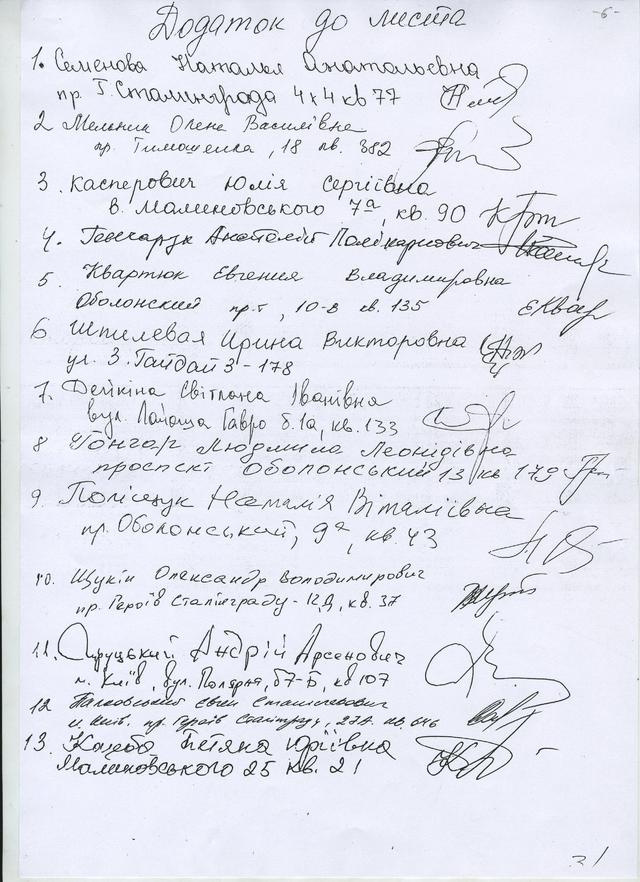 -6-
Додаток до листа
1. Семенова Наталья Анатольевна
пр. Г. Сталинграда 4 кв 77
2 Мельник Олена Василівна
пр. Тимошенка, 18 кв. 382
3. Касперович Юлія Сергіївна
в. Малиновського 7а, кв. 90
4. Гончарук Анатолій Полікарпович
5. Квартюк Евгения Владимировна
Оболонский пр-т, 10-в кв. 135
6 Шпилевая Ирина Викторовна
ул. З. Гайдай 3-178
7. Дейкіна Світлана Іванівна
вул. Лайоша Гавро б.1а, кв. 133
8 Гонгар Людмила Леонідівна
проспект Оболонський 13 кв 179
9. Поліщук Наталія Віталіївна
пр. Оболонський, 9а, кв. 43
10. Щукін Олександр Володимирович
пр. Героїв Сталінграду - 12Д, кв. 37
11. Андрій Арсенович
м. Київ, вул. Полярна, 8-Б, кв 107
12
м. Київ. пр. Героїв Сталінграду, 27А кв.
13. Тетяна Юріївна
Малиновського 25 кв. 21